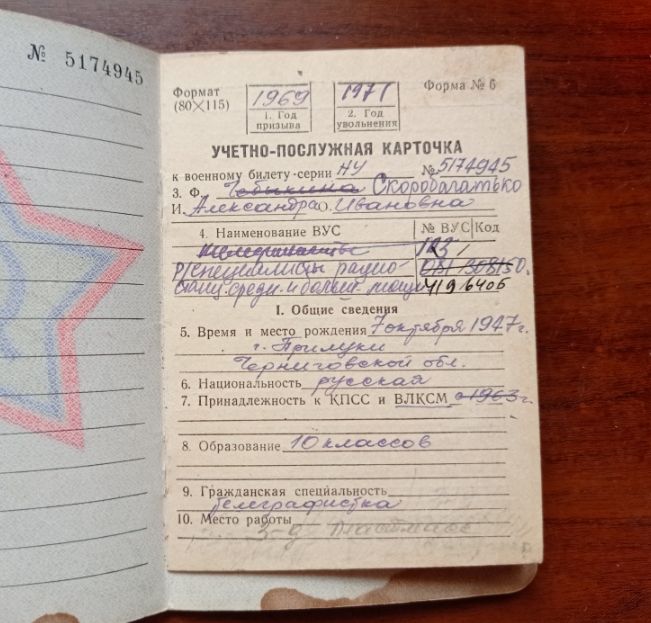 № 5174945
Формат
(80×115)
1969
1. Год
призыва
1971
2. Год
увольнения
Форма № 6
УЧЕТНО-ПОСЛУЖНАЯ КАРТОЧКА
к военному билету серии НУ № 5174945
3. Ф. Скоробагатько
И. Александра О. Ивановна
4. Наименование ВУС № ВУС Код
Р/специалисты радио-
станц. средн. и больш. мощн.
5. Время и место рождения 7 октября 1947 г.
г. Прилуки
Черниговской обл.
I. Общие сведения
6. Национальность русская
7. Принадлежность к КПСС и ВЛКСМ с 1963 г.
8. Образование 10 классов
9. Гражданская специальность
телеграфистка
10. Место работы
з-д Пластмасс